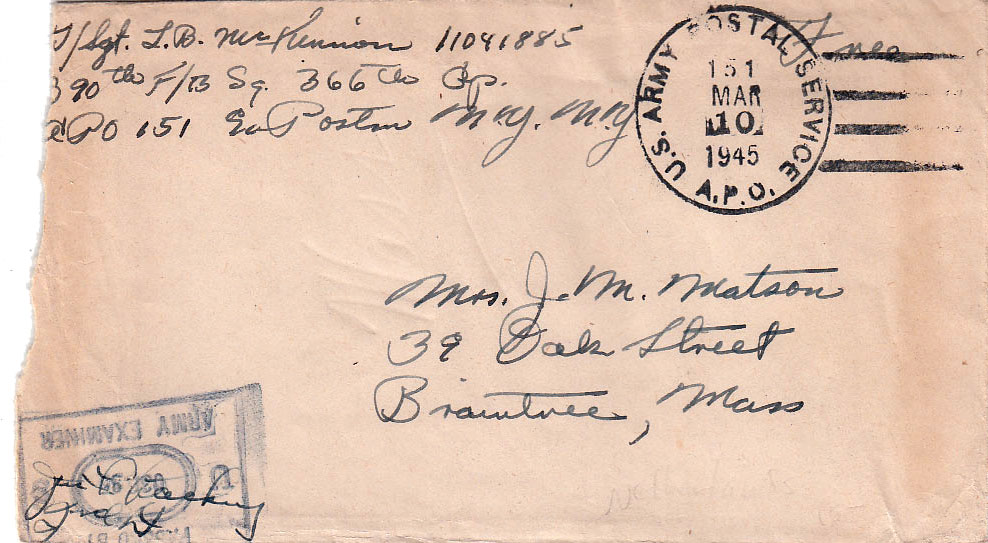 T/Sgt. L.B. McKinnon 11041885
390th F/B Sq. 366th Gp.
APO 151 c/o Postm N.Y. N.Y.
Free
U.S. ARMY POSTAL SERVICE
151
MAR
10
1945
A.P.O.
Mrs. J. M. Matson
39 Oak Street
Braintree, Mass
ARMY EXAMINER
PASSED BY